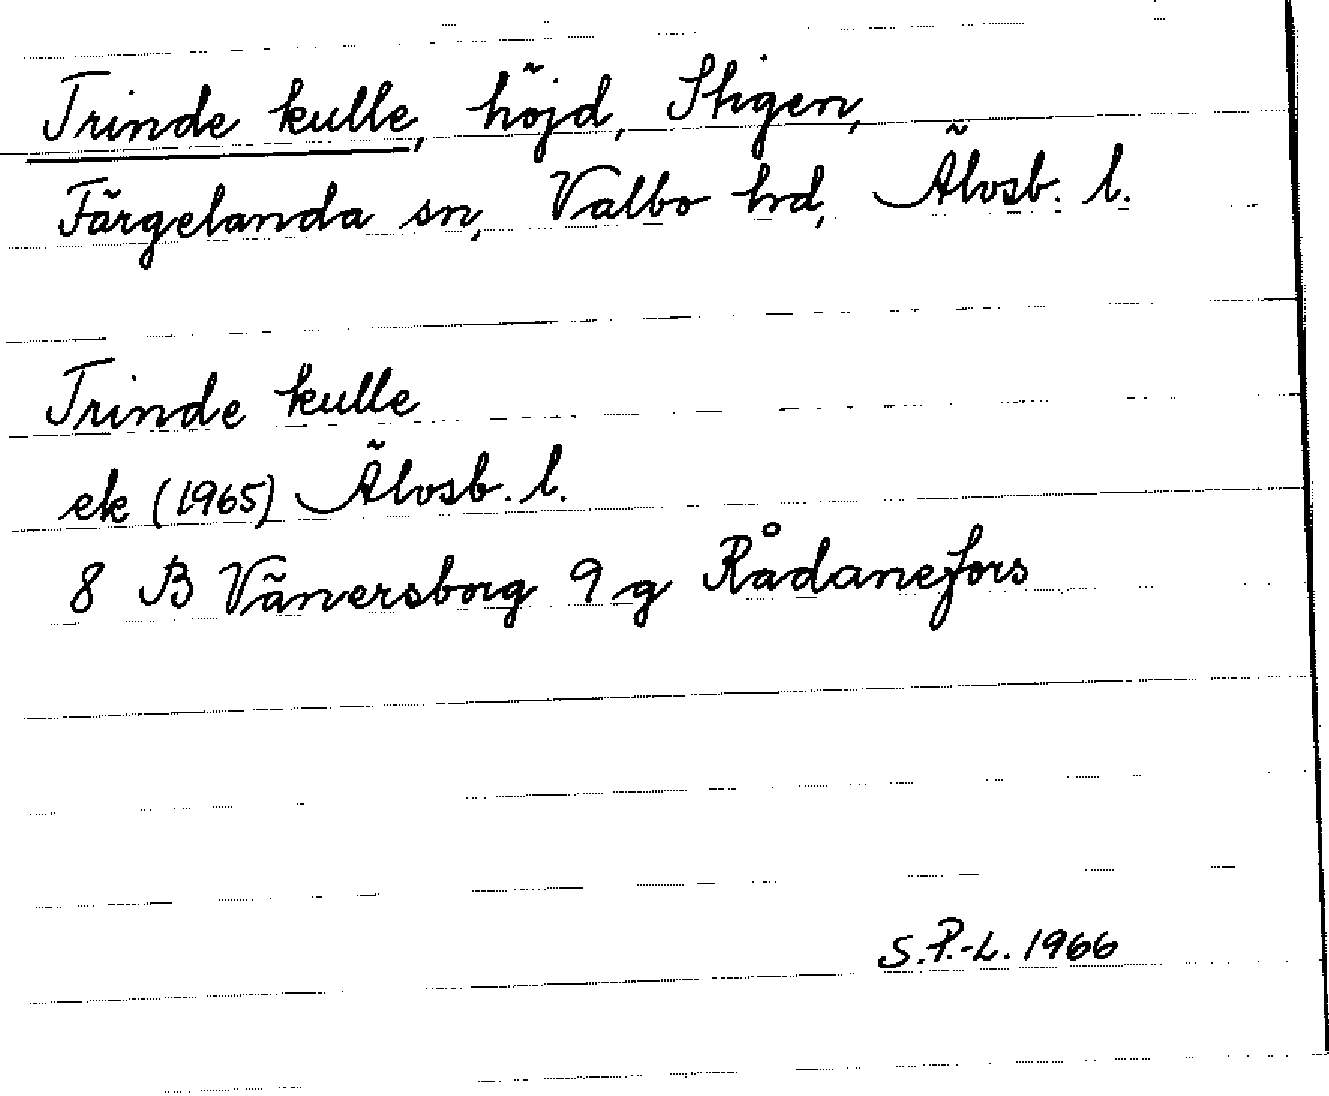 Trinde kulle, höjd, Stigen,
Färgelanda sn, Valbo hd, Älvsb. l.
Trinde kulle
ek (1965) Älvsb. l.
8 B Vänersborg 9 g Rådanefors
S.P.-L. 1966